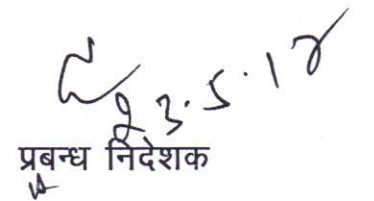 23.5.18
प्रबन्ध निदेशक